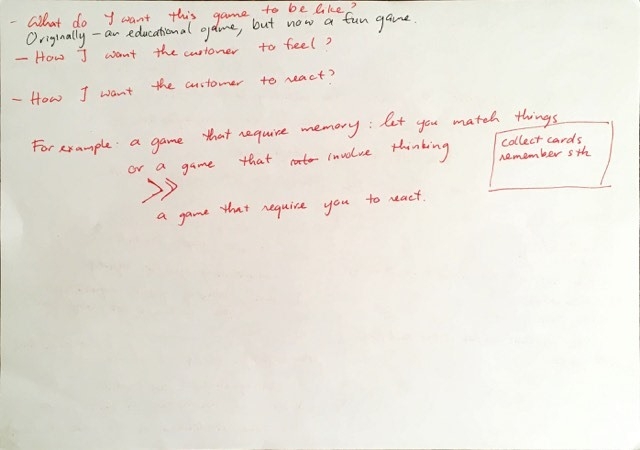 - What do I want this game to be like?
Originally - an educational game, but now a fun game.
- How I want the customer to feel?
- How I want the customer to react?
For example: a game that require memory: let you match things
or a game that involve thinking
collect cards
remember sth
>>
a game that require you to react.